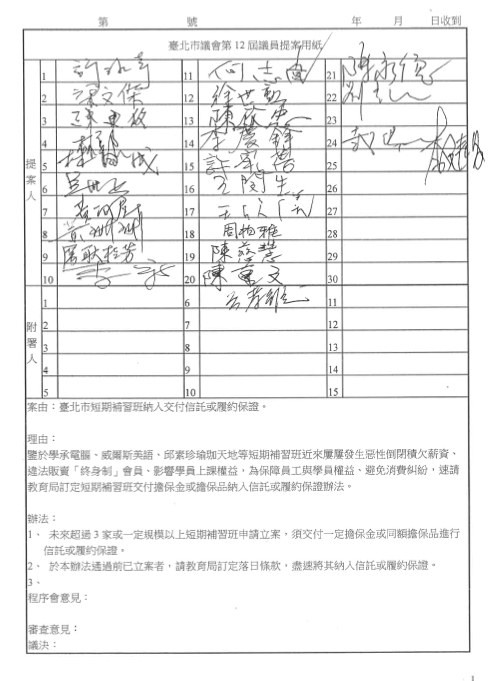 第 號 年 月 日收到
臺北市議會第 12 屆議員提案用紙
提案人
1 11 何志偉 21
2 梁文傑 12 徐世勳 22
3 13 23
4 14 李慶鋒 24
5 15 許家蓓 25
6 16 王閔生 26
7 17 27
8 18 周柏雅 28
9 厲耿桂芳 19 陳慈慧 29
10 20 30
附署人
1 6 11
2 7 12
3 8 13
4 9 14
5 10 15
案由：臺北市短期補習班納入交付信託或履約保證。
理由：
鑒於學承電腦、威爾斯美語、邱素珍瑜珈天地等短期補習班近來屢屢發生惡性倒閉積欠薪資、
違法販賣「終身制」會員、影響學員上課權益，為保障員工與學員權益、避免消費糾紛，速請
教育局訂定短期補習班交付擔保金或擔保品納入信託或履約保證辦法。
辦法：
1、 未來超過 3 家或一定規模以上短期補習班申請立案，須交付一定擔保金或同額擔保品進行
信託或履約保證。
2、 於本辦法通過前已立案者，請教育局訂定落日條款，盡速將其納入信託或履約保證。
3、
程序會意見：
審查意見：
議決：
1